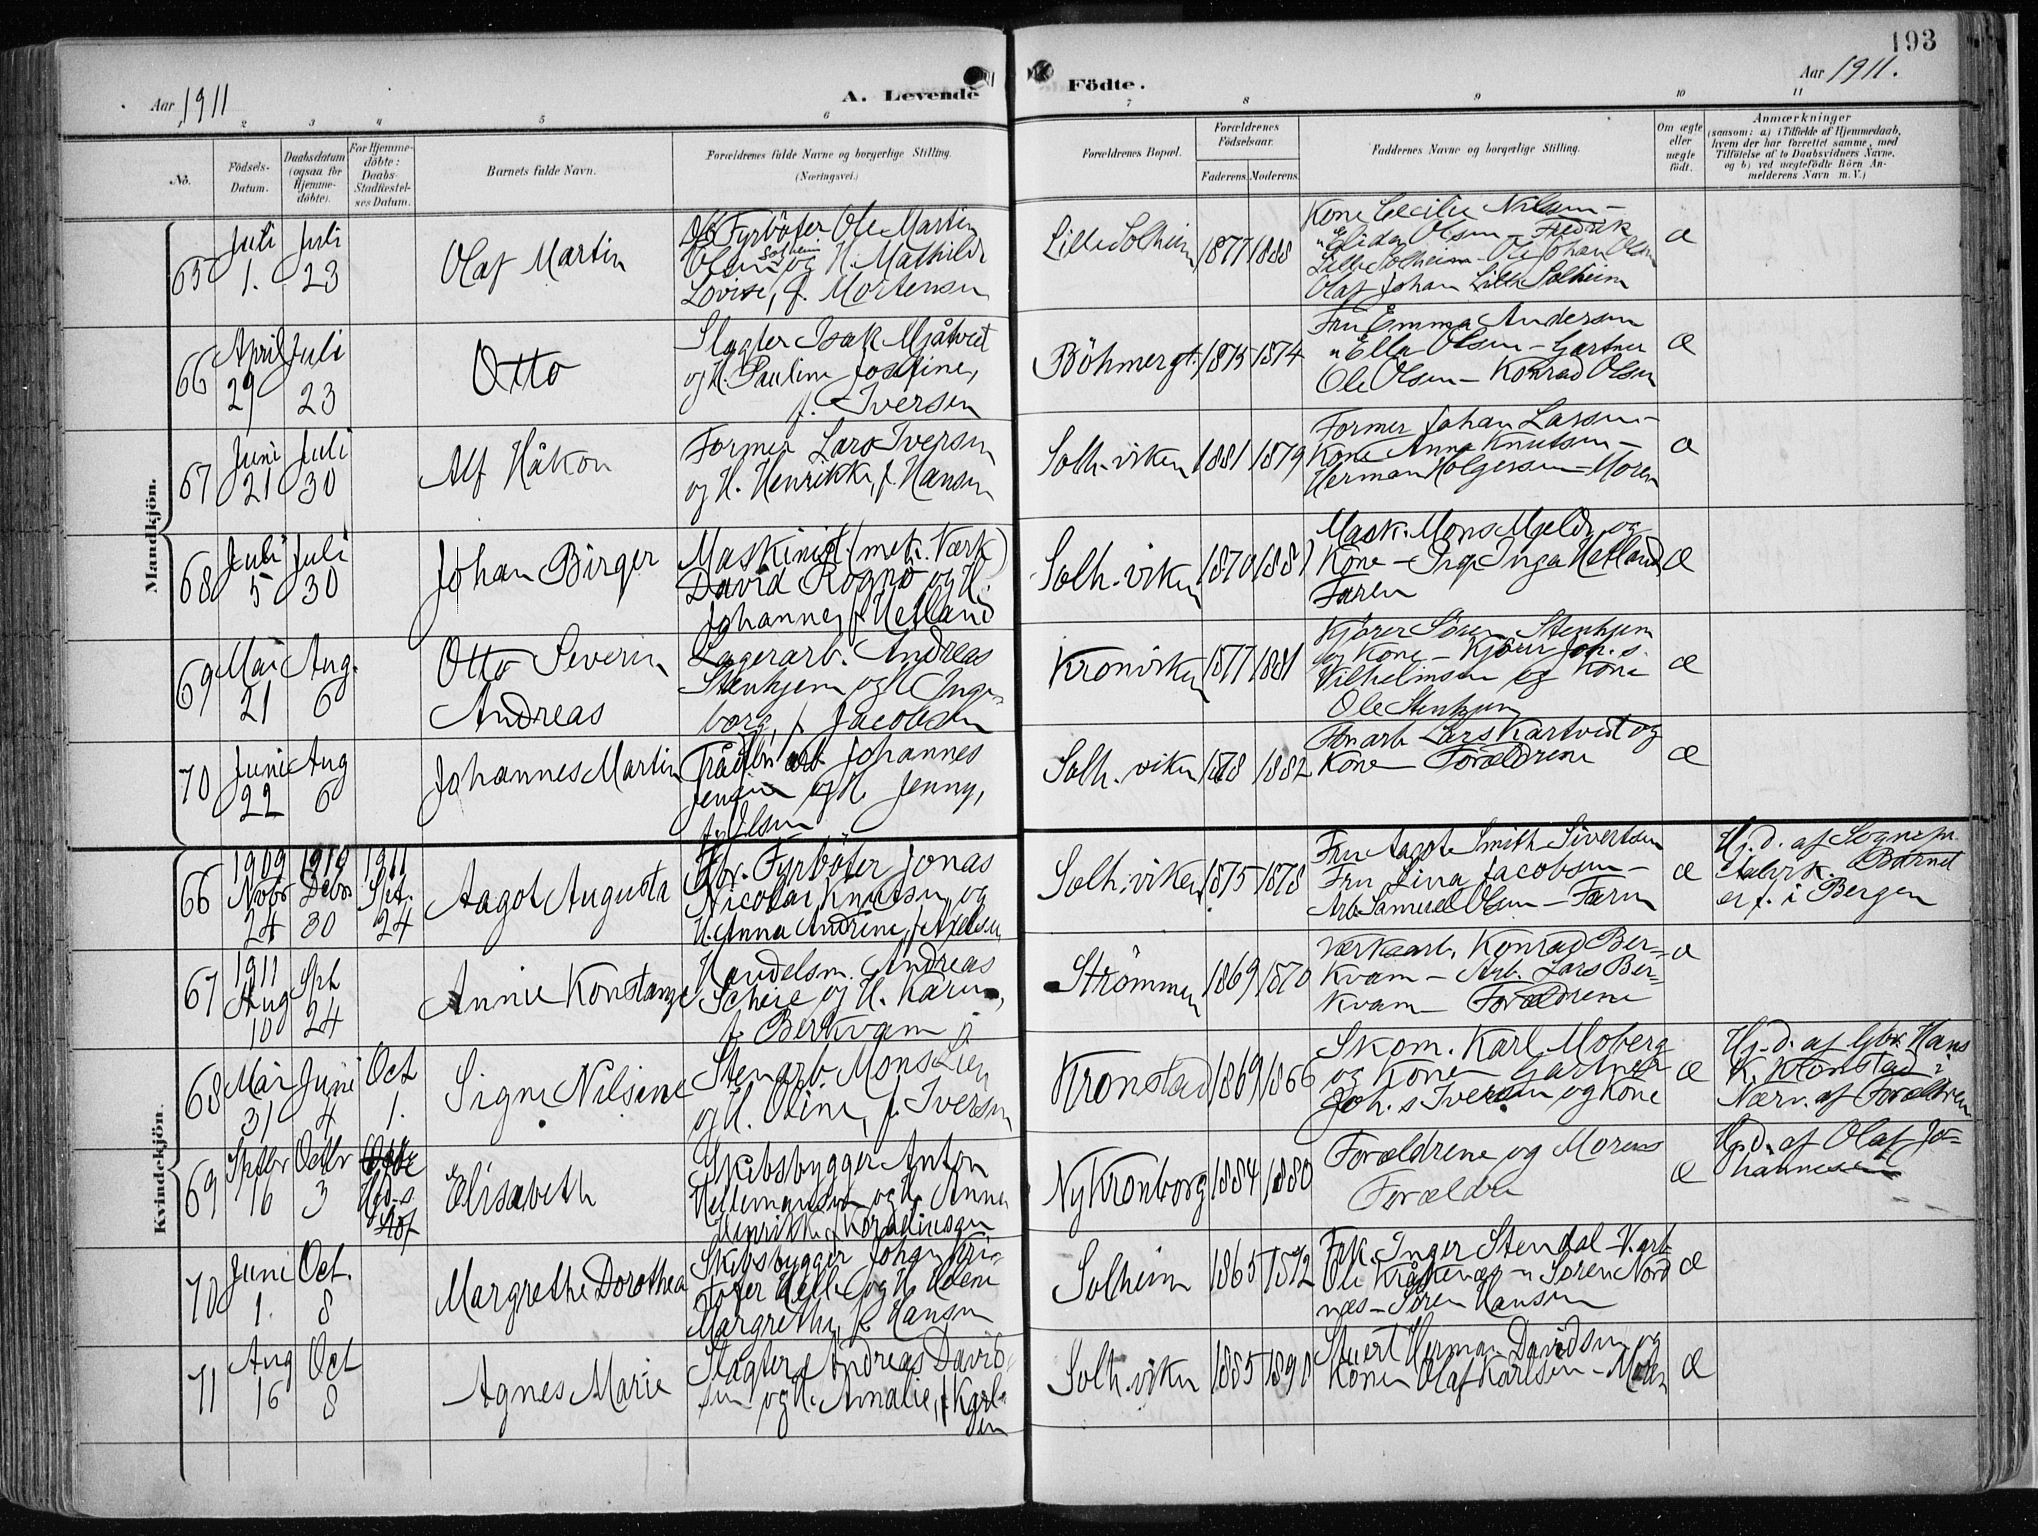 193
Aar 1911
A. Levende Födte.
Aar 1911.
1 2 3 4 5 6 7 8 9 10 11
No.
Födsels-Datum.
Daabsdatum (ogsaa for Hjemme-döbte).
For Hjemme-döbte: Daabs-Stadfæstel-ses Datum.
Barnets fulde Navn.
Forældrenes fulde Navne og borgerlige Stilling.
(Næringsvei.)
Forældrenes Bopæl.
Forældrenes Födselsaar.
Faderens. Moderens.
Faddernes Navne og borgerlige Stilling.
Om ægte eller uægte födt.
Anmærkninger
(saasom: a) i Tilfælde af Hjemmedaab, hvem der har forrettet samme, med Tilföielse af to Daabsvidners Navne, og b) ved uægtefödte Börn An-melderens Navn m. V.)
Mandkjön.
65 Juli 1. Juli 23 Olaf Martin
Fyrböter Ole Martin
Olsen Solheim og H. Mathilde
Lovise, f. Mortensen
Lille Solheim 1877 1888
Kone Cecilie Nilsen -
" Elida Olsen - Fredrik
Lille Solheim - Ole Johan Olsen
Olaf Johan Lille Solheim
Æ
66 April 29 Juli 23 Otto
Slagter Isak Mjåtveit
og H. Pauline Josefine,
f. Iversen
Böhmergt. 1875 1874
Fru Emma Andersen
" Ella Olsen - Gartner
Ole Olsen - Konrad Olsen
Æ
67 Juni 21 Juli 30 Alf Håkon
Former Lars Iversen
og H. Henrikke, f. Hansen
Solh.viken 1881 1879
Former Johan Larsen -
Kone Anna Knutsen -
Herman Holgersen - Moren
Æ
68 Juli 5 Juli 30 Johan Birger
Maskinist (mek. Værk)
David Rognö og H.
Johanne, f. Hetland
Solh.viken 1870 1881
Mask. Mons Mjelde og
Kone - Pige Inga Hetland
Faren
Æ
69 Mai 21 Aug. 6 Otto Severin
Andreas
Lagerarb. Andreas
Stenhjem og H. Inge-
borg, f. Jacobsen
Kronviken 1877 1881
Kjörer Sören Stenhjem
og Kone - Kjörer Joh.s
Vilhelmsen og Kone
Ole Stenhjem
Æ
70 Juni 22 Aug 6 Johannes Martin
arb. Johannes
Jensen og H. Jenny,
f. Olsen
Solh.viken 1878 1882
Lars Kartveit og
Kone Forældrene
Æ
Kvindekjön.
66 1909 Novbr 24 1910 Debr. 30 1911 Spt. 24 Aagot Augusta
Fyrböter Jonas
Nicolai Knutsen og
H. Anna Andrine, f. Axelsen
Solh.viken 1875 1878
Fru Aagot Smith Sivertsen
Fru Lina Jacobsen -
Arb. Samuel Olsen - Faren
Æ
Hj.d. af Sognepr.
Aalvik. Barnet
er f. i Bergen
67 1911 Aug 10 Spt 24 Annie Konstanze
Handelsm. Andreas
Scheie og H. Karen,
f. Berkvam
Strömmen 1869 1870
Værksarb. Konrad Ber-
kvam - Arb. Lars Ber-
kvam Forældrene
Æ
68 Mai 31 Juni 4 Oct 1. Signe Nilsine
Stenarb. Mons Lien
og H. Oline, f. Iversen
Kronstad 1869 1866
Skom. Karl Moberg
og Kone Gartner
Joh.s Iversen og Kone
Æ
Hj.d. af Gbr. Hans
K. Kronstad i
Nærv. af Forældrene
69 Septbr 16 Octbr 3 Elisabeth
Skibsbygger Anton
og H. Anna
Henrikke, f. Korneliussen
Ny Kronborg 1884 1880
Forældrene og Morens
Forældre
Æ
Hj.d. af Olaf Jo-
hannesen
70 Juni 1. Oct. 8 Margrethe Dorothea
Skibsbygger Johan Kri-
stofer Helle og H. Helene
Margrethe, f. Hansen
Solheim 1865 1872
Frk. Inger Stendal - V.arb.
Ole Kråkenæs - " Sören Nord
næs - Sören Hansen
Æ
71 Aug 16 Oct 8 Agnes Marie
Slagter Andreas David-
sen og H. Amalie, f. Karl-
sen
Solh.viken 1885 1890
Stuert Herman Davidsen og
Kone Olaf Karlsen - Moder
Æ